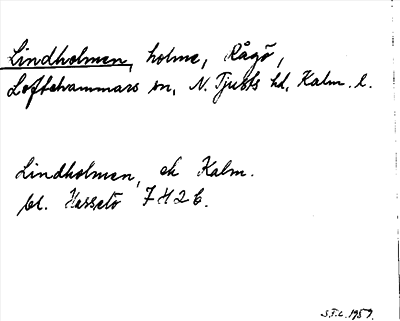 Lindholmen, holme, Rågö,
Loftahammars sn, N. Tjusts hd, Kalm. l.
Lindholmen, ek Kalm.
bl. Hasselö 7 H 2 E.
S.T.C. 1959.